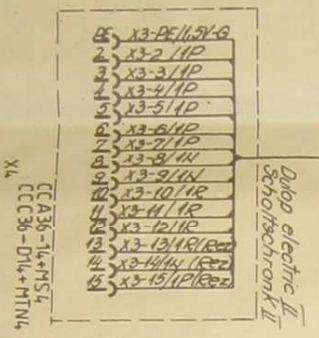 PE X3-PE/1,5V-G
2 X3-2/1P
3 X3-3/1P
4 X3-4/1P
5 X3-5/1P
6 X3-6/1P
7 X3-7/1P
8 X3-8/1N
9 X3-9/1N
10 X3-10/1R
11 X3-11/1R
12 X3-12/1R
13 X3-13/1R(Rez)
14 X3-14/1N (Rez)
15 X3-15/1P(Rez)
Dylop electric II
Schaltschrank II
CCA36-14+MS4
CCC36-D14+MTN4
X4